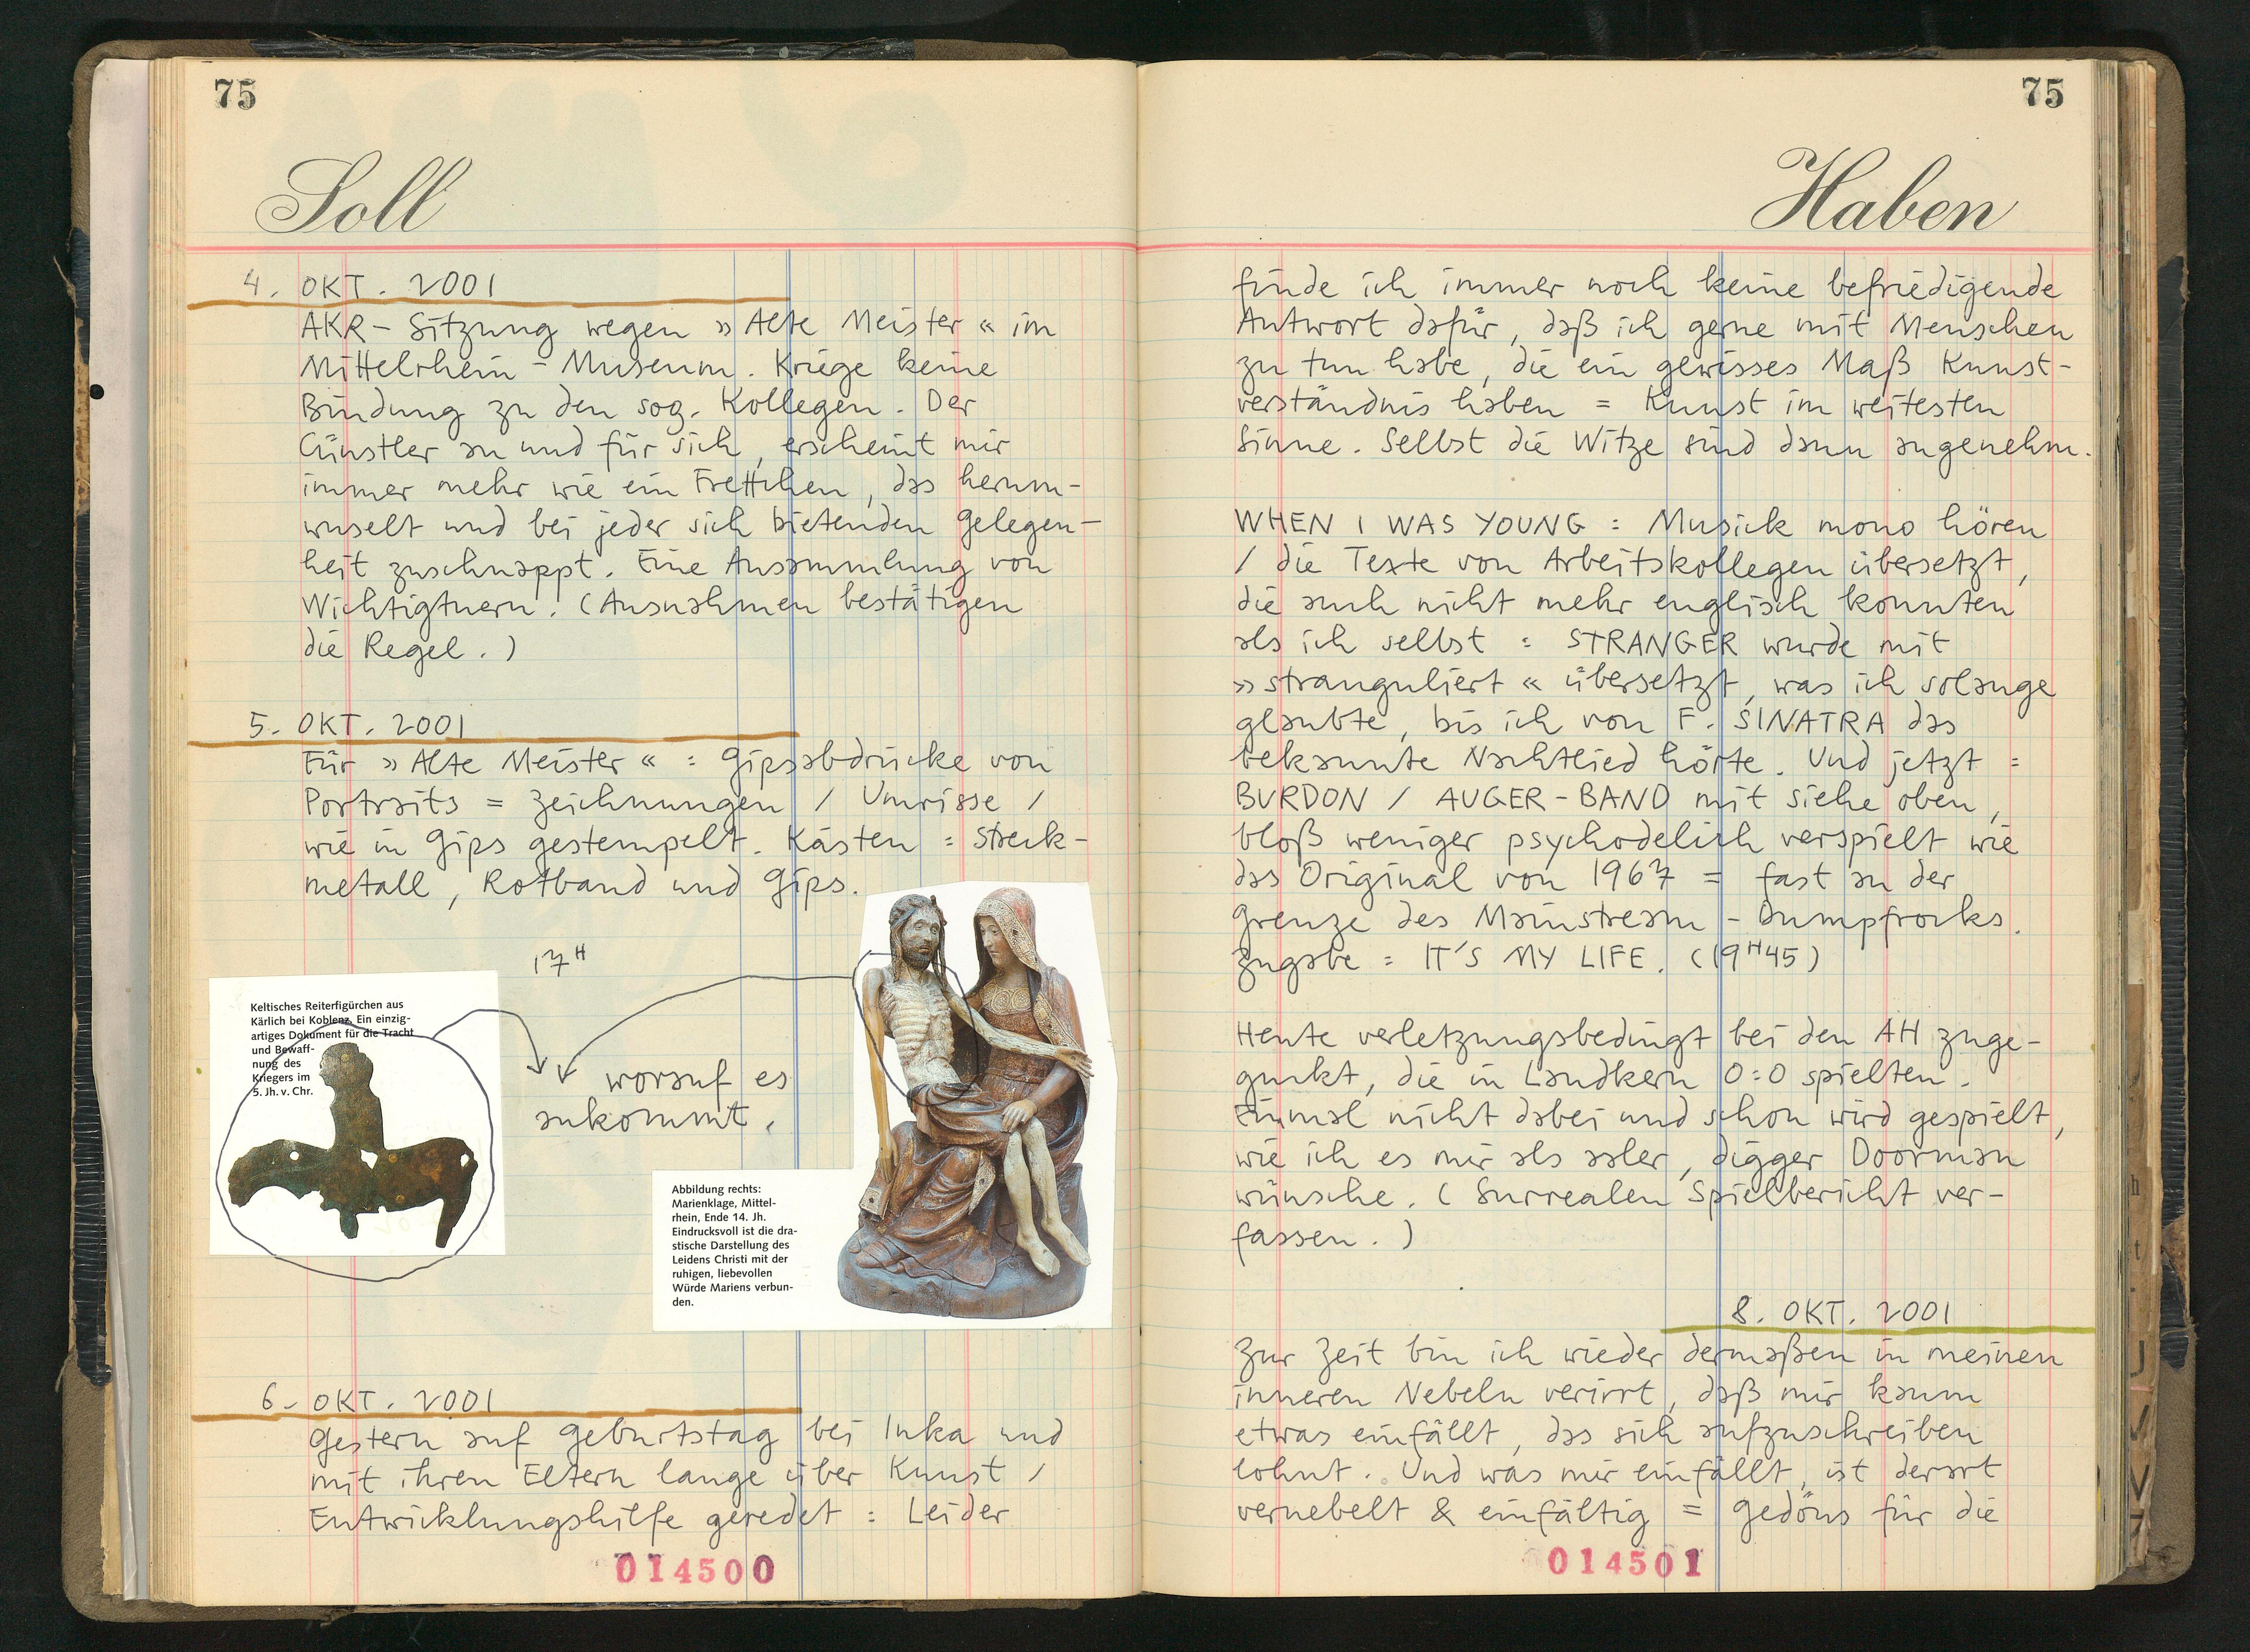 75
Soll
4. OKT. 2001
AKR-Sitzung wegen »Alte Meister« im
Mittelrhein-Museum. Kriege keine
Bindung zu den sog. Kollegen. Der
Cünstler an und für sich, erscheint mir
immer mehr wie ein Frettchen, das herum-
wuselt und bei jeder sich bietenden Gelegen-
heit zuschnappt. Eine Ansammlung von
Wichtigtuern. (Ausnahmen bestätigen
die Regel.)
5. OKT. 2001
Für »Alte Meister« : Gipsabdrücke von
Portraits = Zeichnungen / Umrisse /
wie in Gips gestempelt. Kästen : Streck-
metall, Rotband und Gips.
17H
Keltisches Reiterfigürchen aus
Kärlich bei Koblenz. Ein einzig-
artiges Dokument für die Tracht
und Bewaff-
nung des
Kriegers im
5. Jh. v. Chr.
worauf es
ankommt.
Abbildung rechts:
Marienklage, Mittel-
rhein, Ende 14. Jh.
Eindrucksvoll ist die dra-
stische Darstellung des
Leidens Christi mit der
ruhigen, liebevollen
Würde Mariens verbun-
den.
6. OKT. 2001
Gestern auf Geburtstag bei Inka und
mit ihren Eltern lange über Kunst /
Entwicklungshilfe geredet : Leider
014500
75
Haben
finde ich immer noch keine befriedigende
Antwort dafür, daß ich gerne mit Menschen
zu tun habe, die ein gewisses Maß Kunst-
verständnis haben = Kunst im weitesten
Sinne. Selbst die Witze sind dann angenehm.
WHEN I WAS YOUNG : Musick mono hören
/ die Texte von Arbeitskollegen übersetzt,
die auch nicht mehr englisch konnten
als ich selbst : STRANGER wurde mit
»stranguliert« übersetzt, was ich solange
glaubte, bis ich von F. SINATRA das
bekannte Nachtlied hörte. Und jetzt :
BURDON / AUGER-BAND mit siehe oben,
bloß weniger psychodelich verspielt wie
das Original von 1967 = fast an der
Grenze des Mainstream-Dumpfrocks.
Zugabe : IT'S MY LIFE. (19H45)
Heute verletzungsbedingt bei den AH zuge-
guckt, die in Landkern 0:0 spielten.
Einmal nicht dabei und schon wird gespielt,
wie ich es mir als aaler, digger Doorman
wünsche. (Surrealen Spielbericht ver-
fassen.)
8. OKT. 2001
Zur Zeit bin ich wieder dermaßen in meinen
inneren Nebeln verirrt, daß mir kaum
etwas einfällt, das sich aufzuschreiben
lohnt. Und was mir einfällt, ist derart
vernebelt & einfältig = Gedöns für die
014501